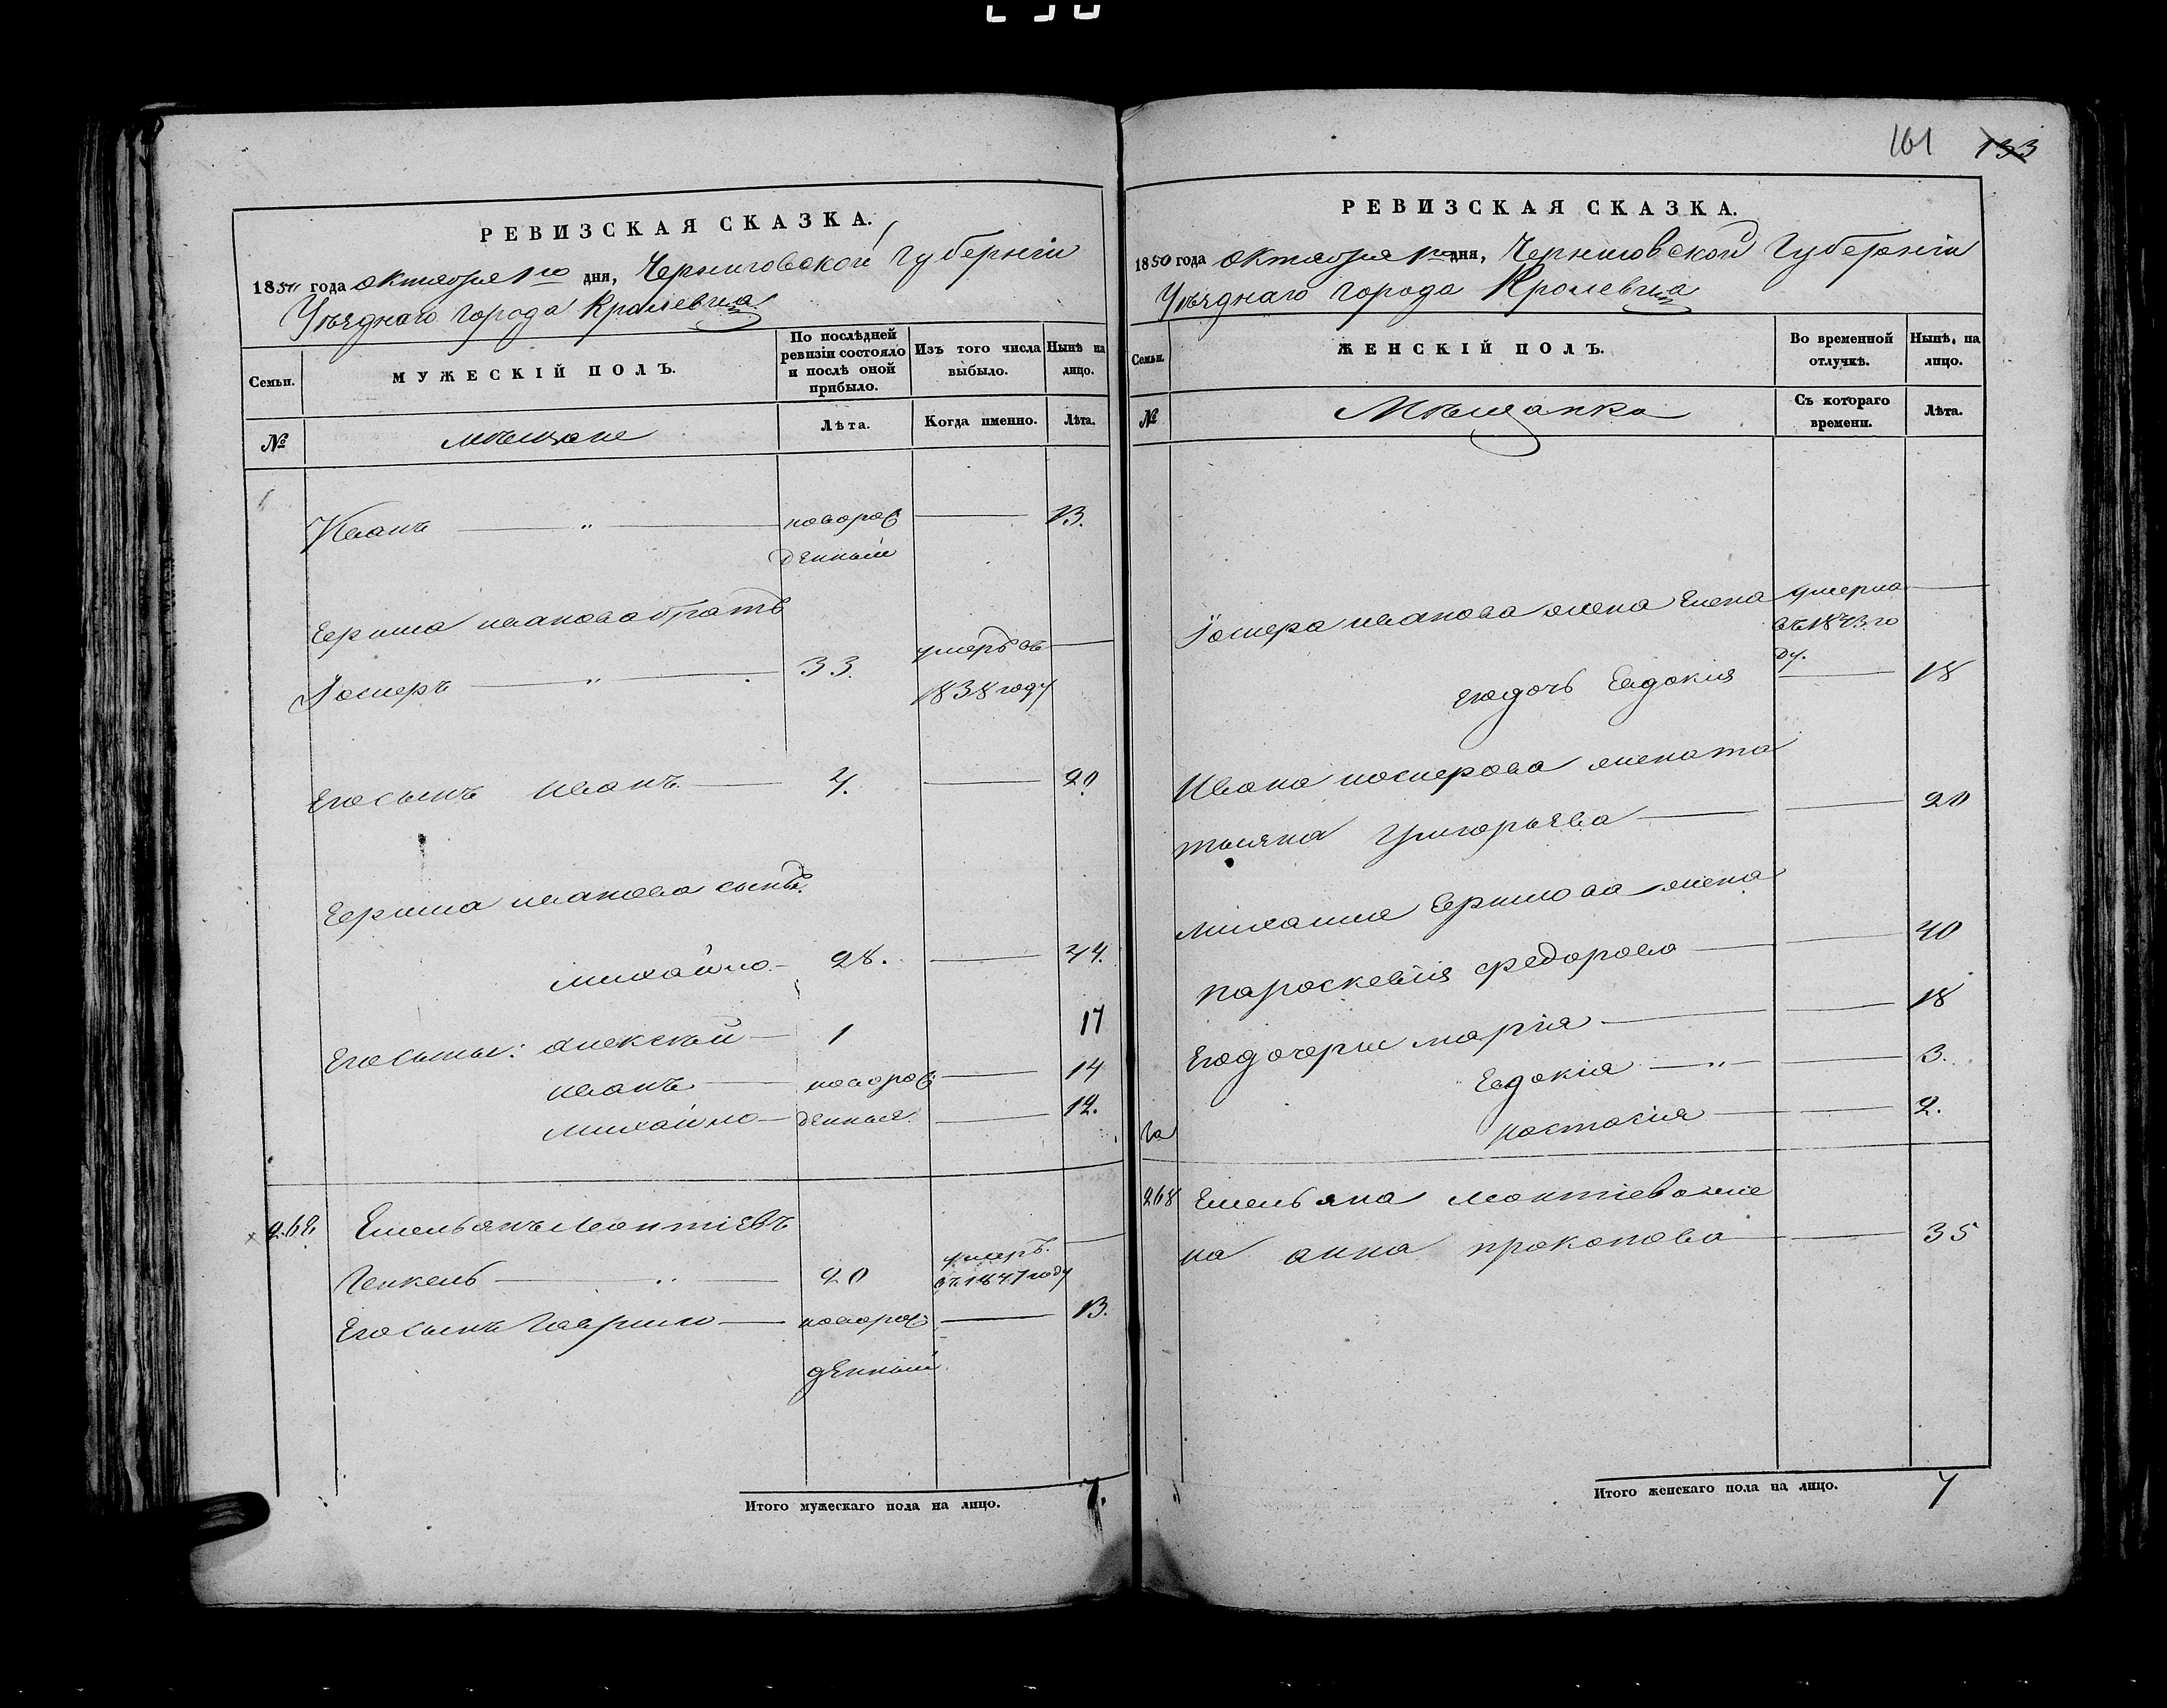 161 133
РЕВИЗСКАЯ СКАЗКА.
1850 года октября 1го дня, Черниговской Губерніи
Уѣзднаго города Кролевца
Семьи.
МУЖЕСКІЙ ПОЛЪ.
По послѣдней ревизіи состояло и послѣ оной прибыло.
Изъ того числа выбыло.
Нынѣ на лицо.
№
мѣщане
Лѣта.
Когда именно.
Лѣта.
Иванъ — " — новорож — 13.
денный
Іосифъ — " — 33. умеръ въ —
1838 году
Его сынъ Иванъ — 4. — 20
Михайло — 28. — 44.
Его сыны: Алексѣй — 1 17
Иванъ — новорож — 14
Михайло — денные — 12.
268. Емельянъ Леонтіевъ
— " — 20 умеръ —
въ 1847 году
Его сынъ Гаврило — новорож — 13.
денный
Итого мужескаго пола на лицо. 7.
РЕВИЗСКАЯ СКАЗКА.
1850 года октября 1го дня, Черниговской Губерніи
Уѣзднаго города Кролевца
Семьи.
ЖЕНСКІЙ ПОЛЪ.
Во временной отлучкѣ.
Нынѣ, на лицо.
№
Мѣщанка
Съ котораго времени.
Лѣта.
Иванова жена Елена умерла —
въ 1843 го
ду.
его дочь Евдокія — 18
Ивана жена та
тьяна Григорьева — — 20
Михаила жена
Параскевія Федорова — — 40
Его дочери Марія — — 18
Евдокія — " — — 3.
Настасія — — 2.
268 Емельяна Леонтіева же
на Анна Прокопова — — 35
Итого женскаго пола на лицо. 7